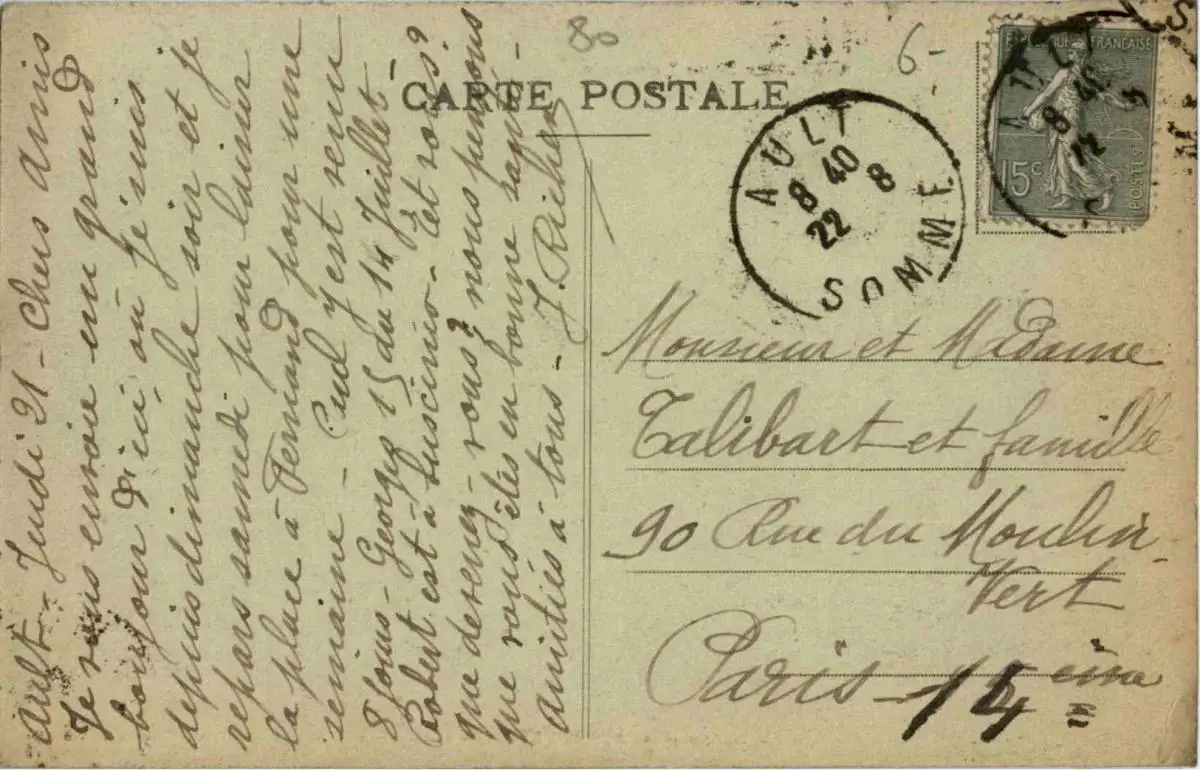 Ault - Jeudi 21 - Chers amis
Je vous envoie un grand
bonjour d'ici, où je suis
depuis dimanche soir et je
repars samedi pour laisser
la place à Fernand pour une
semaine - Paul y est venu
3 jours - Georges 15 du 14 Juillet -
Robert est à - Et vous?
que devenez-vous? nous pensons
que vous êtes en bonne santé -
amitiés à tous - J. Richer
80
6-
CARTE POSTALE
AULT
8 40
22 8
SOMME
REPUBLIQUE FRANÇAISE
15c
POSTES
AULT
8 40
22
Monsieur et Madame
Talibart et famille
90 Rue du Moulin
Vert
Paris - 14 ème